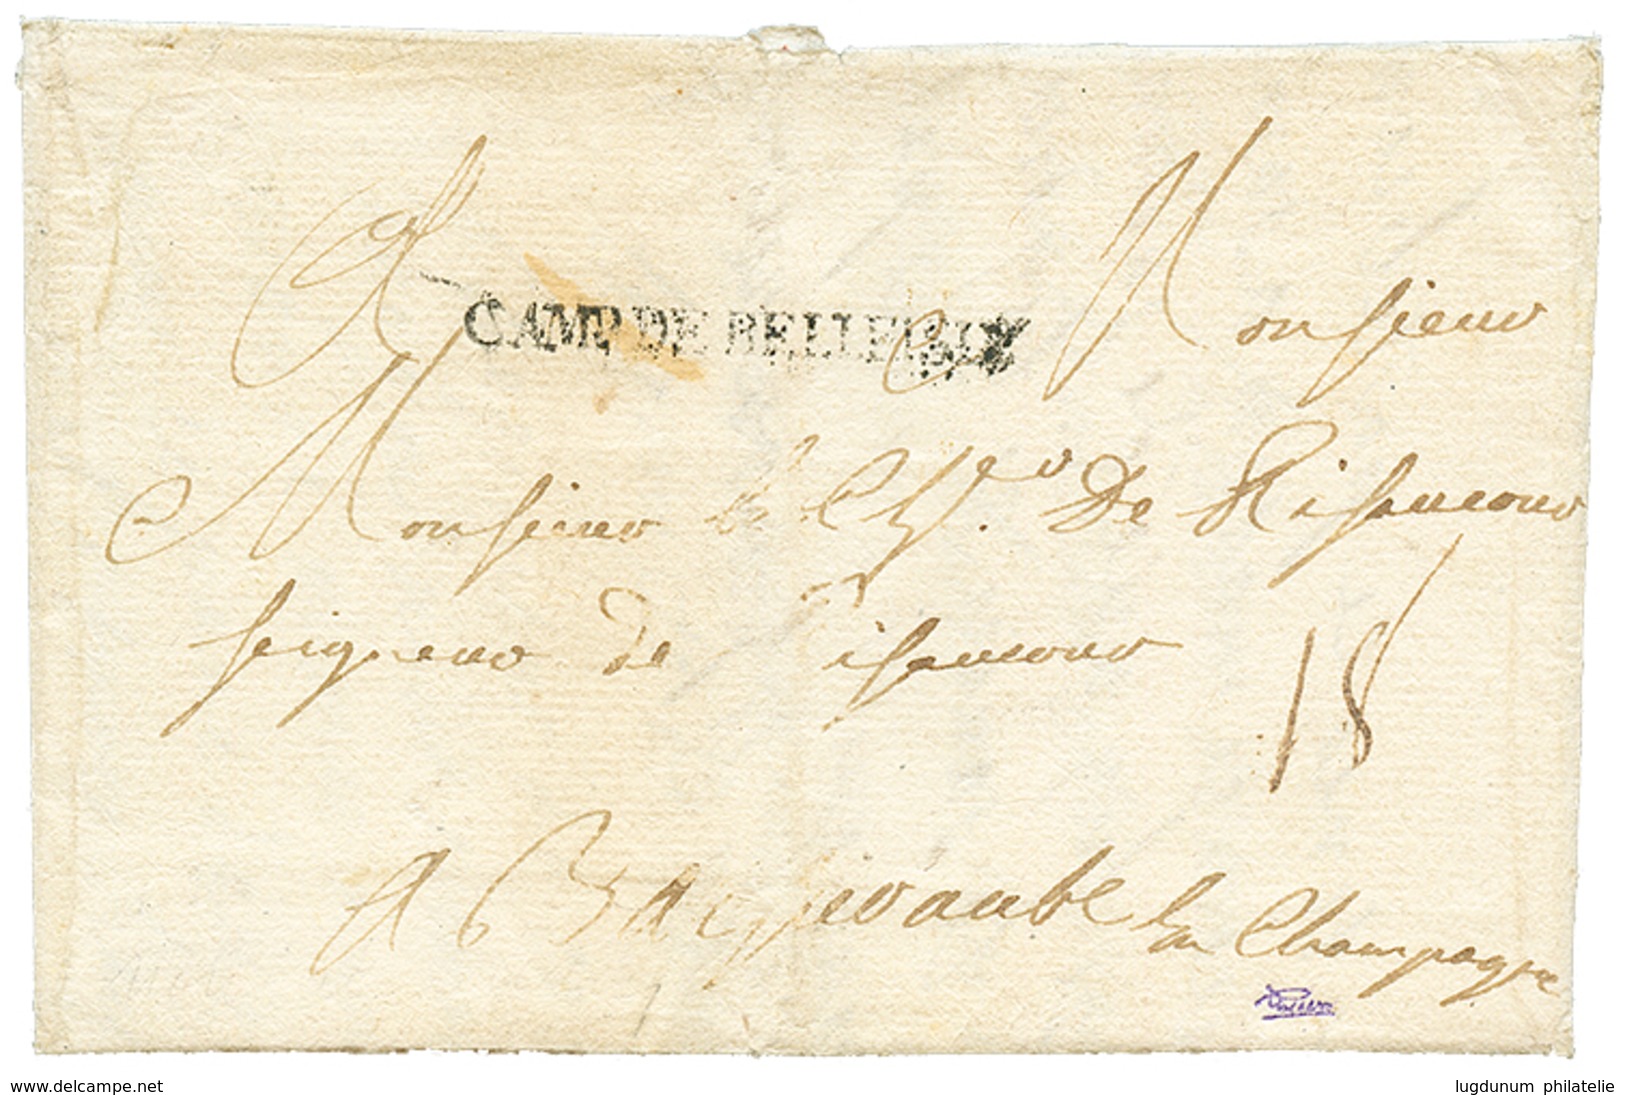 A Monsieur
CAMP DE BELLEISLE
Monsieur le Ch.er De Risaucour
seigneur de Risaucour
18
A Barsuraube en Champagne
www.delcampe.net
lugdunum philatelie